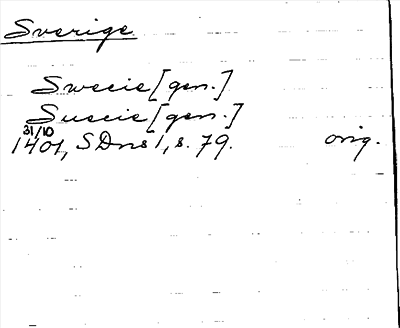 Sverige
Swecie [gen.]
Suecie [gen.]
31/10
1401, SDns 1, s. 79. orig.